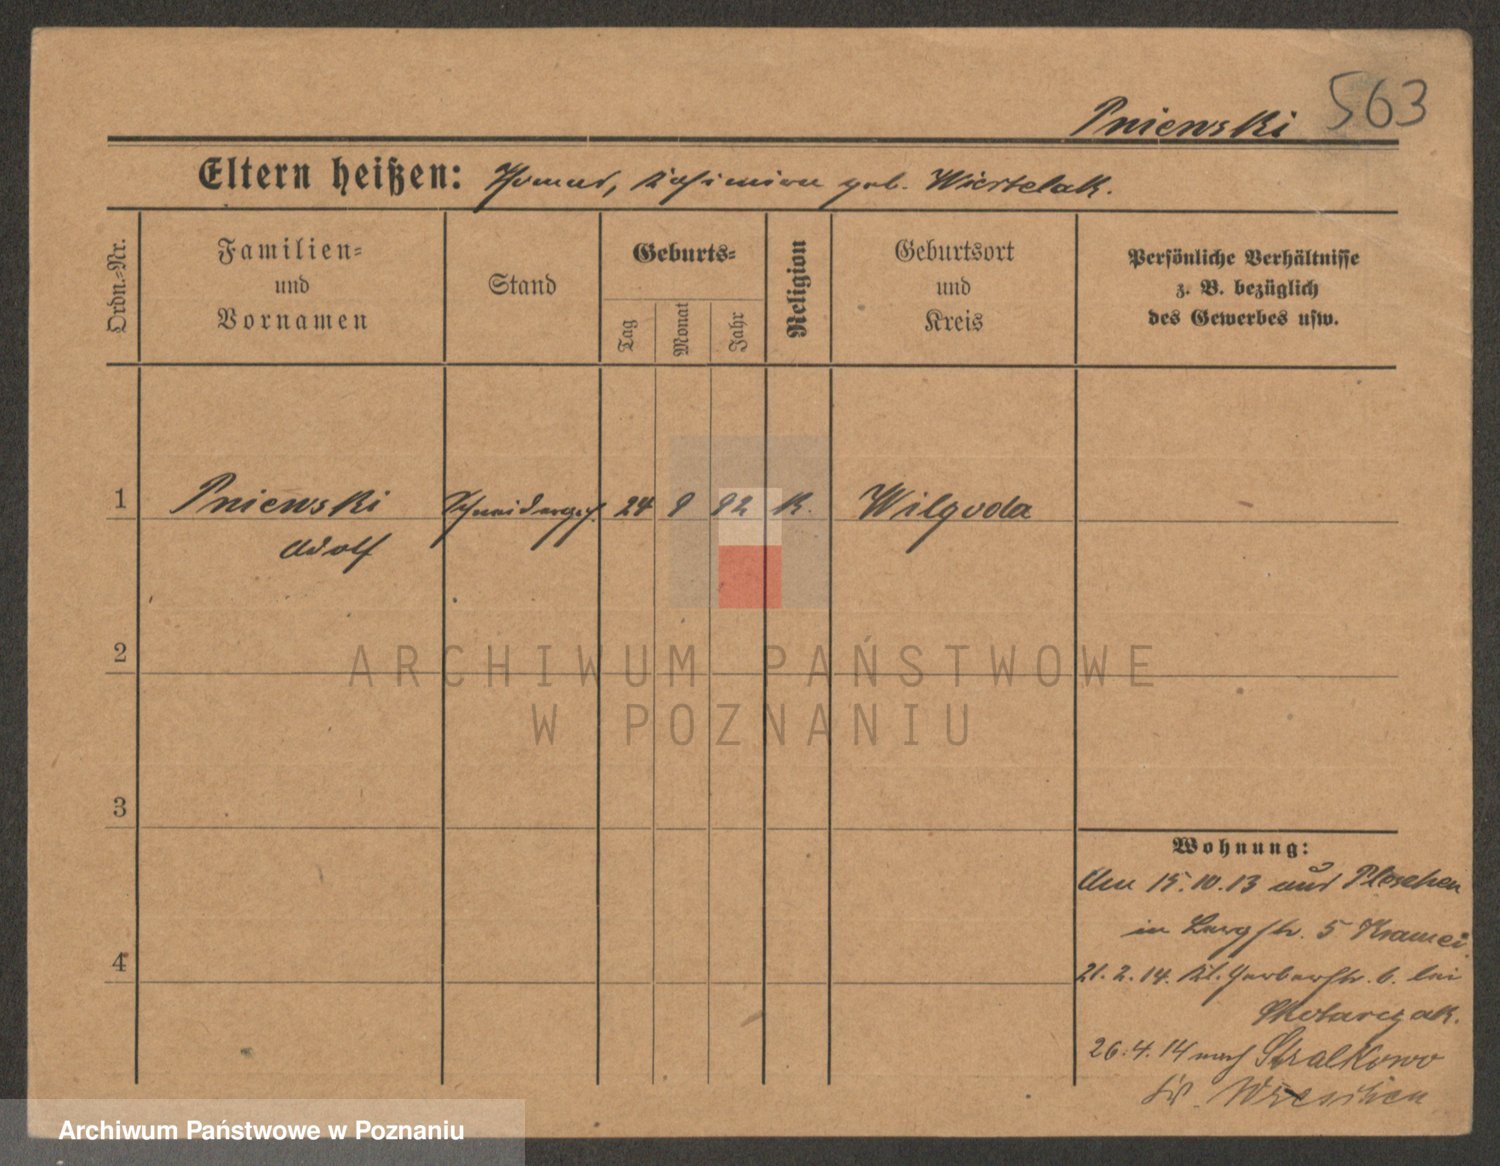 563
Pniewski
Eltern heißen: Thomas, geb. Wiertelak.
Ordn.=Nr.
Familien=
und
Vornamen
Stand
Geburts=
Tag
Monat
Jahr
Religion
Geburtsort
und
Kreis
Persönliche Verhältnisse
z. B. bezüglich
des Gewerbes usw.
1
Pniewski
Adolf
Schneiderges.
24
9
92
K.
Wilgoda
2
ARCHIWUM PAŃSTWOWE
W POZNANIU
3
4
Wohnung:
Am 15.10.13 aus Pleschen
in 5
21.2.14. Kl. Gerberstr. 6. bei
26.4.14 nach Stralkowo
Kr. Wreschen
Archiwum Państwowe w Poznaniu